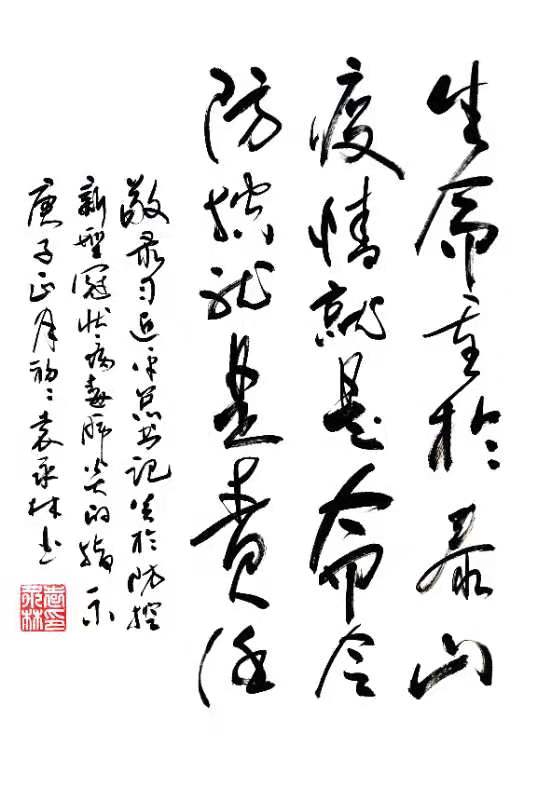 生命重於泰山
疫情就是命令
防控就是責任
敬录习近平总书记关於防控
新型冠状病毒肺炎的指示
庚子正月初二袁承林书